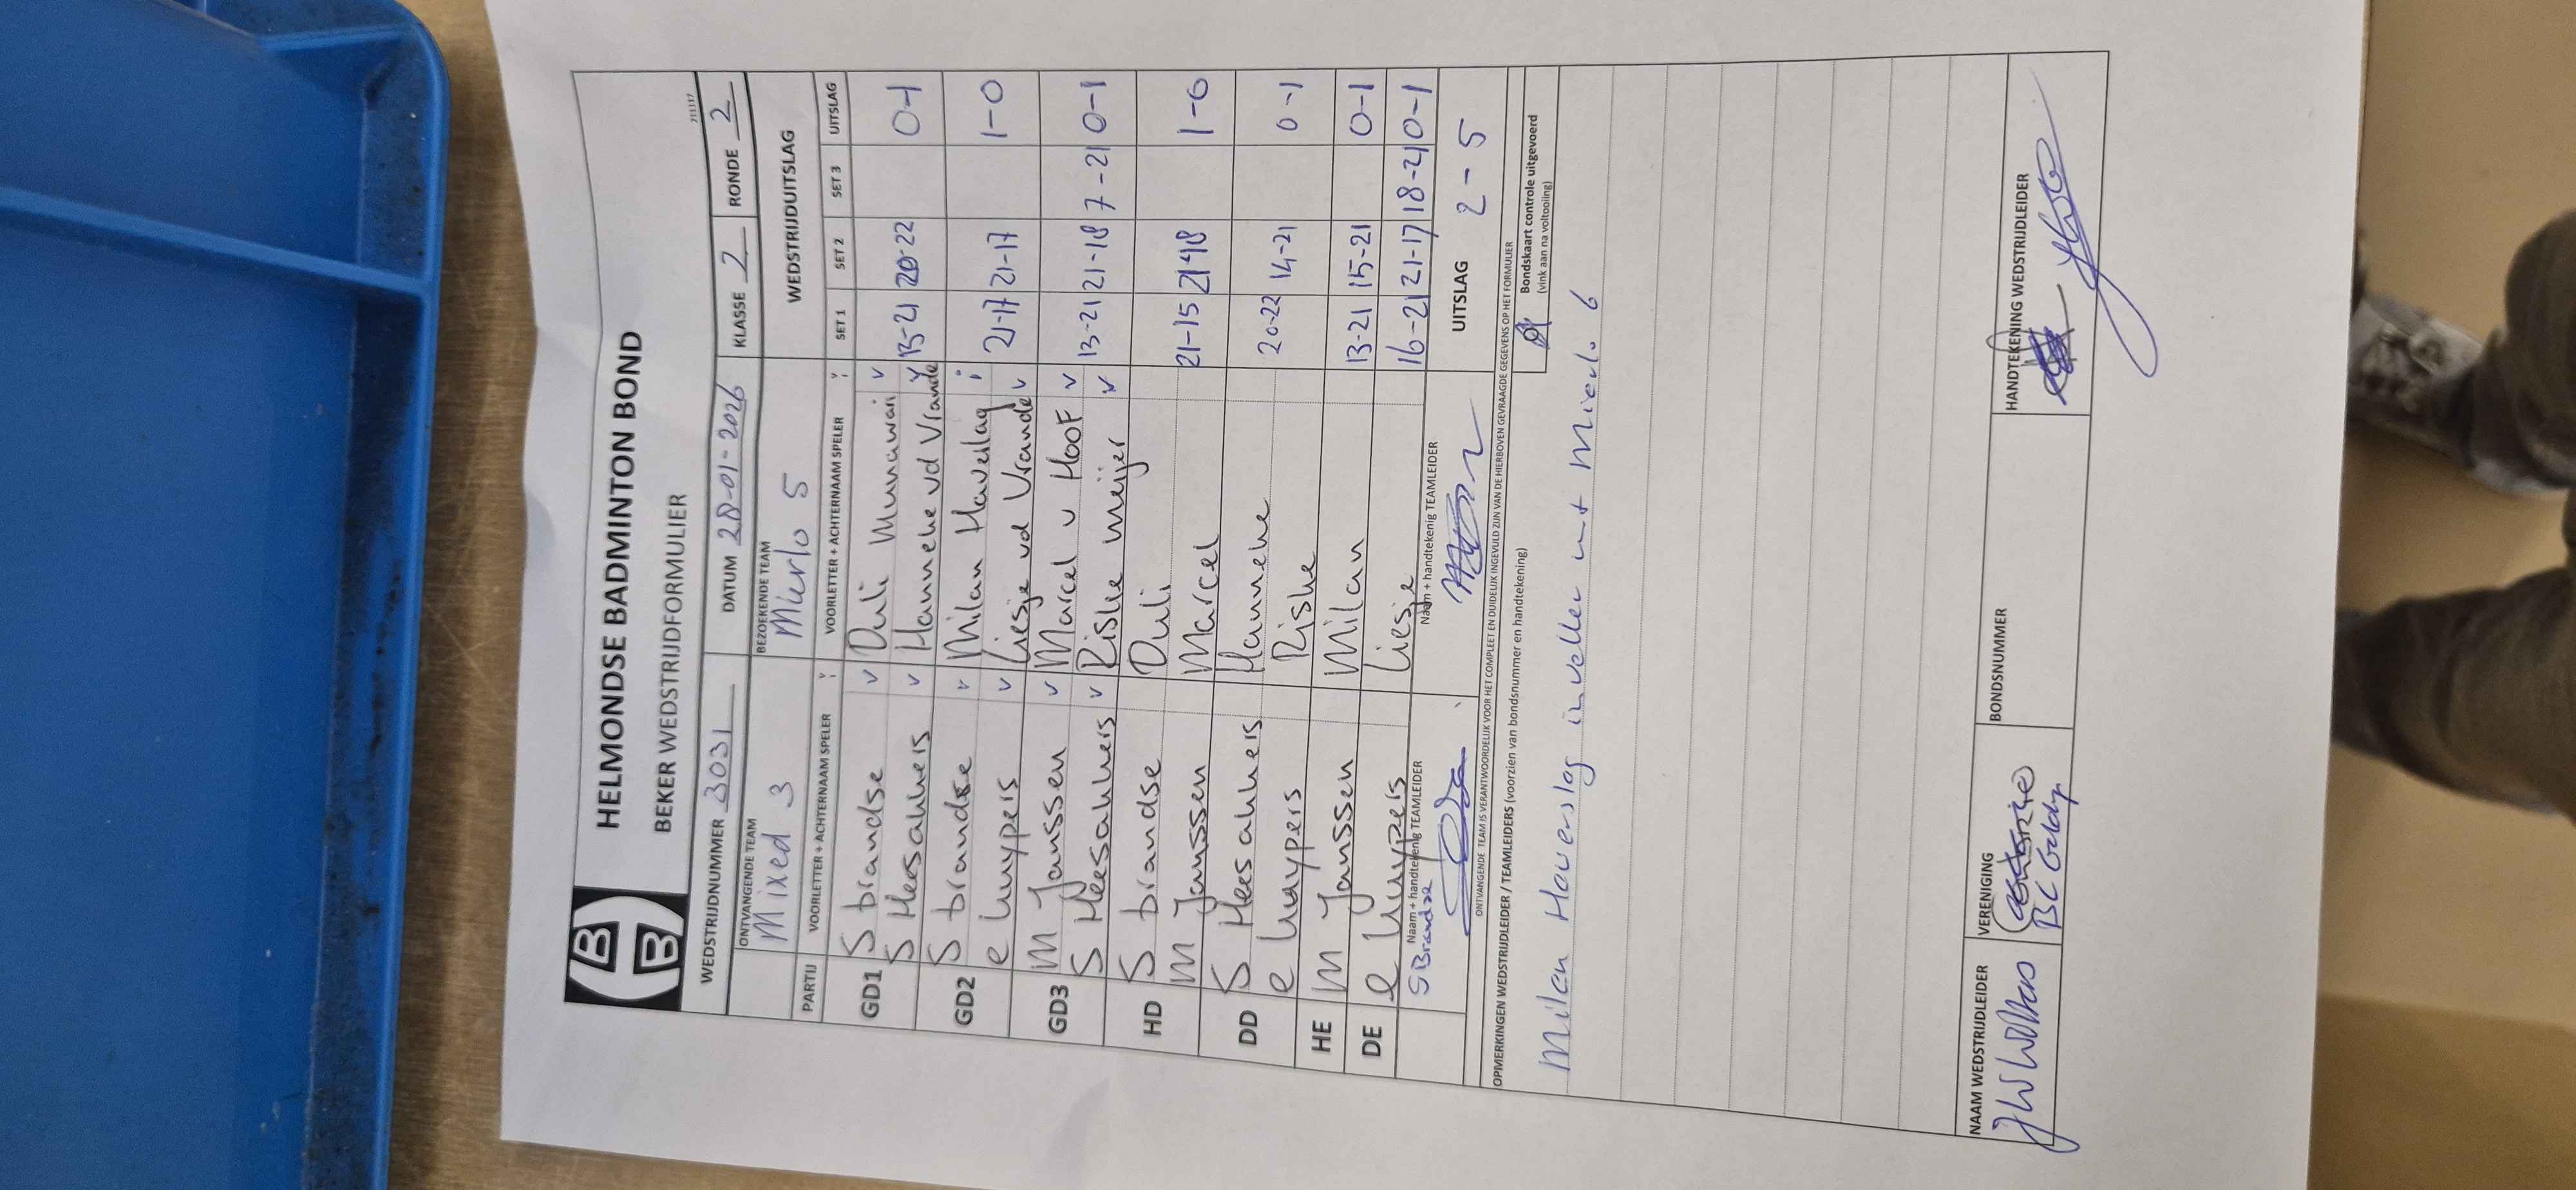 HELMONDSE BADMINTON BOND
BEKER WEDSTRIJDFORMULIER
211117
WEDSTRIJDNUMMER 3031 DATUM 28-01-2026 KLASSE 2 RONDE 2
ONTVANGENDE TEAM BEZOEKENDE TEAM WEDSTRIJDUITSLAG
Mixed 3 Mierlo 5
PARTIJ VOORLETTER + ACHTERNAAM SPELER VOORLETTER + ACHTERNAAM SPELER SET 1 SET 2 SET 3 UITSLAG
GD1 S brandse v Duli Munawan v
S Heesakkers v Hanneke vd Vrande v 13-21 20-22 0-1
GD2 S brandse v Milan Haverlag i
e kuypers v Liesje vd Vrande v 21-17 21-17 1-0
GD3 M Janssen v Marcel v Hoof v
S Heesakkers v Riske meijer v 13-21 21-18 7-21 0-1
HD S brandse Duli
M Janssen Marcel 21-15 21-18 1-0
DD S Heesakkers Hanneke
e kuypers Riske 20-22 14-21 0-1
HE M Janssen Milan 13-21 15-21 0-1
DE e kuypers Liesje 16-21 21-17 18-21 0-1
Naam + handtekenig TEAMLEIDER Naam + handtekenig TEAMLEIDER UITSLAG 2-5
S Brandse
ONTVANGENDE TEAM IS VERANTWOORDELIJK VOOR HET COMPLEET EN DUIDELIJK INGEVULD ZIJN VAN DE HIERBOVEN GEVRAAGDE GEGEVENS OP HET FORMULIER
OPMERKINGEN WEDSTRIJDLEIDER / TEAMLEIDERS (voorzien van bondsnummer en handtekening)
Bondskaart controle uitgevoerd
(vink aan na voltooiing)
Milan Haverslag invaller uit Mierlo 6
NAAM WEDSTRIJDLEIDER VERENIGING BONDSNUMMER HANDTEKENING WEDSTRIJDLEIDER
BC Geldrop